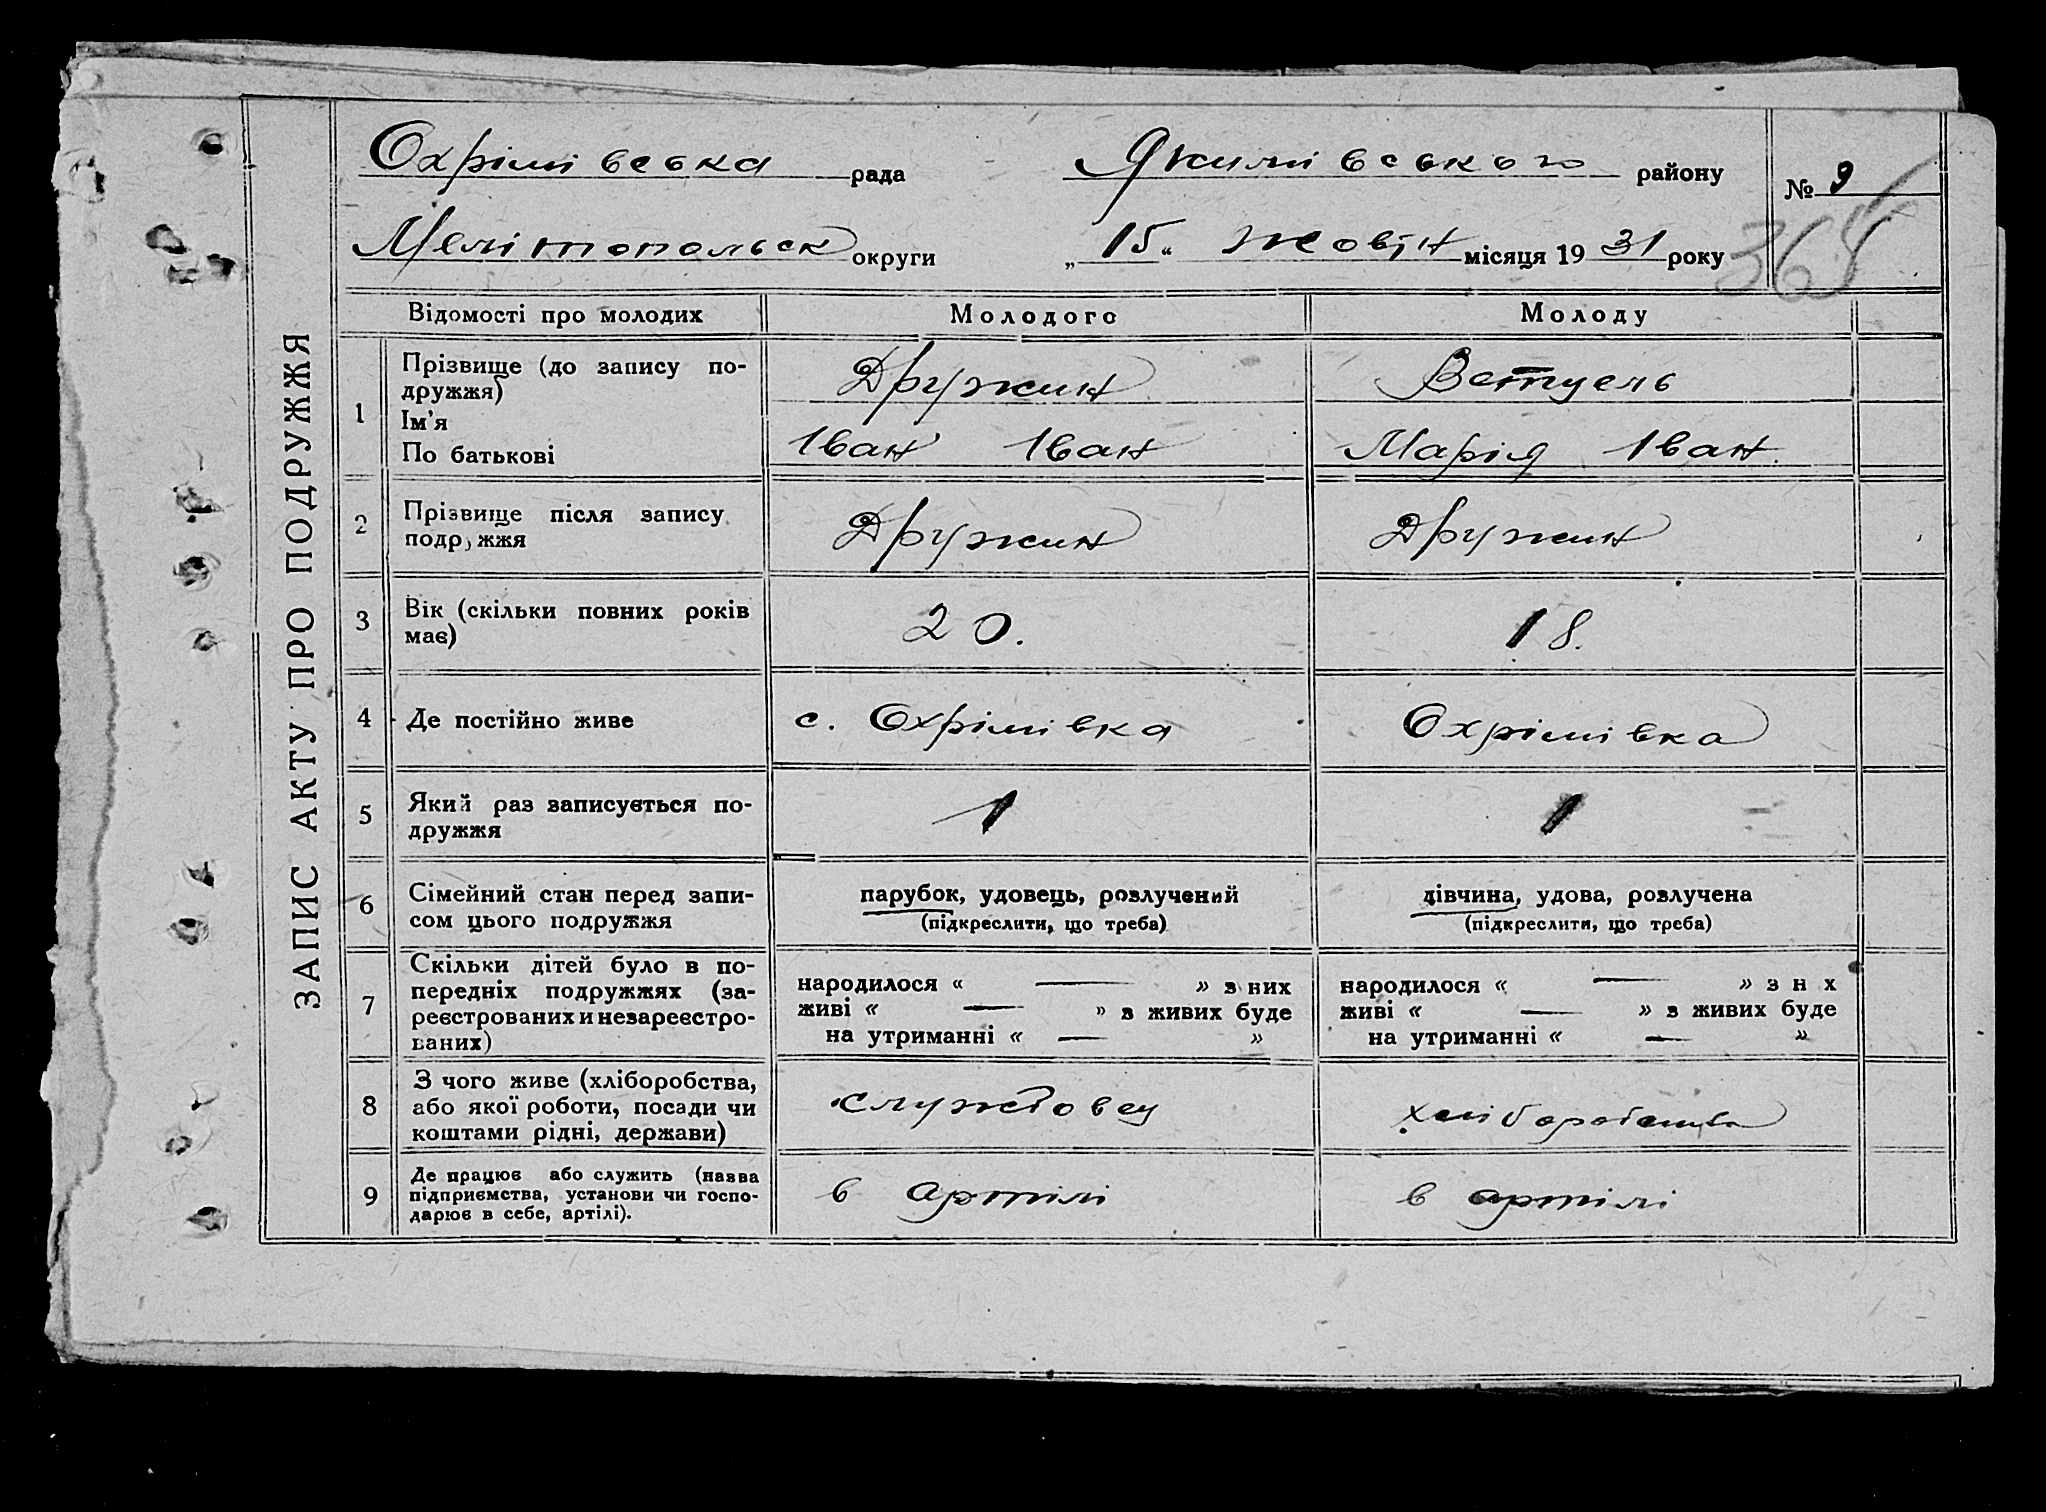 ЗАПИС АКТУ ПРО ПОДРУЖЖЯ
Охрімівська рада Якимівського району № 9
Мелітопольск округи „15“ Жовтн місяця 1931 року
365
Відомості про молодих Молодого Молоду
1 Прізвище (до запису по-
дружжя) Дружин
Ім'я
По батькові Іван Іван Марія Іван.
2 Прізвище після запису
подружжя Дружин Дружин
3 Вік (скільки повних років
має) 20. 18.
4 Де постійно живе с. Охрімівка Охрімівка
5 Який раз записується по-
дружжя 1 1
6 Сімейний стан перед запи-
сом цього подружжя
парубок, удовець, розлучений
(підкреслити, що треба)
дівчина, удова, розлучена
(підкреслити, що треба)
7 Скільки дітей було в по-
передніх подружжях (за-
реєстрованих и незареєстро-
ваних)
народилося « — » з них
живі « — » з живих буде
на утриманні « — »
народилося « — » з н х
живі « — » з живих буде
на утриманні « — »
8 З чого живе (хліборобства,
або якої роботи, посади чи
коштами рідні, держави)
службовец
хліборобства
9 Де працює або служить (назва
підприємства, установи чи госпо-
дарює в себе, артілі).
в артілі
в артілі